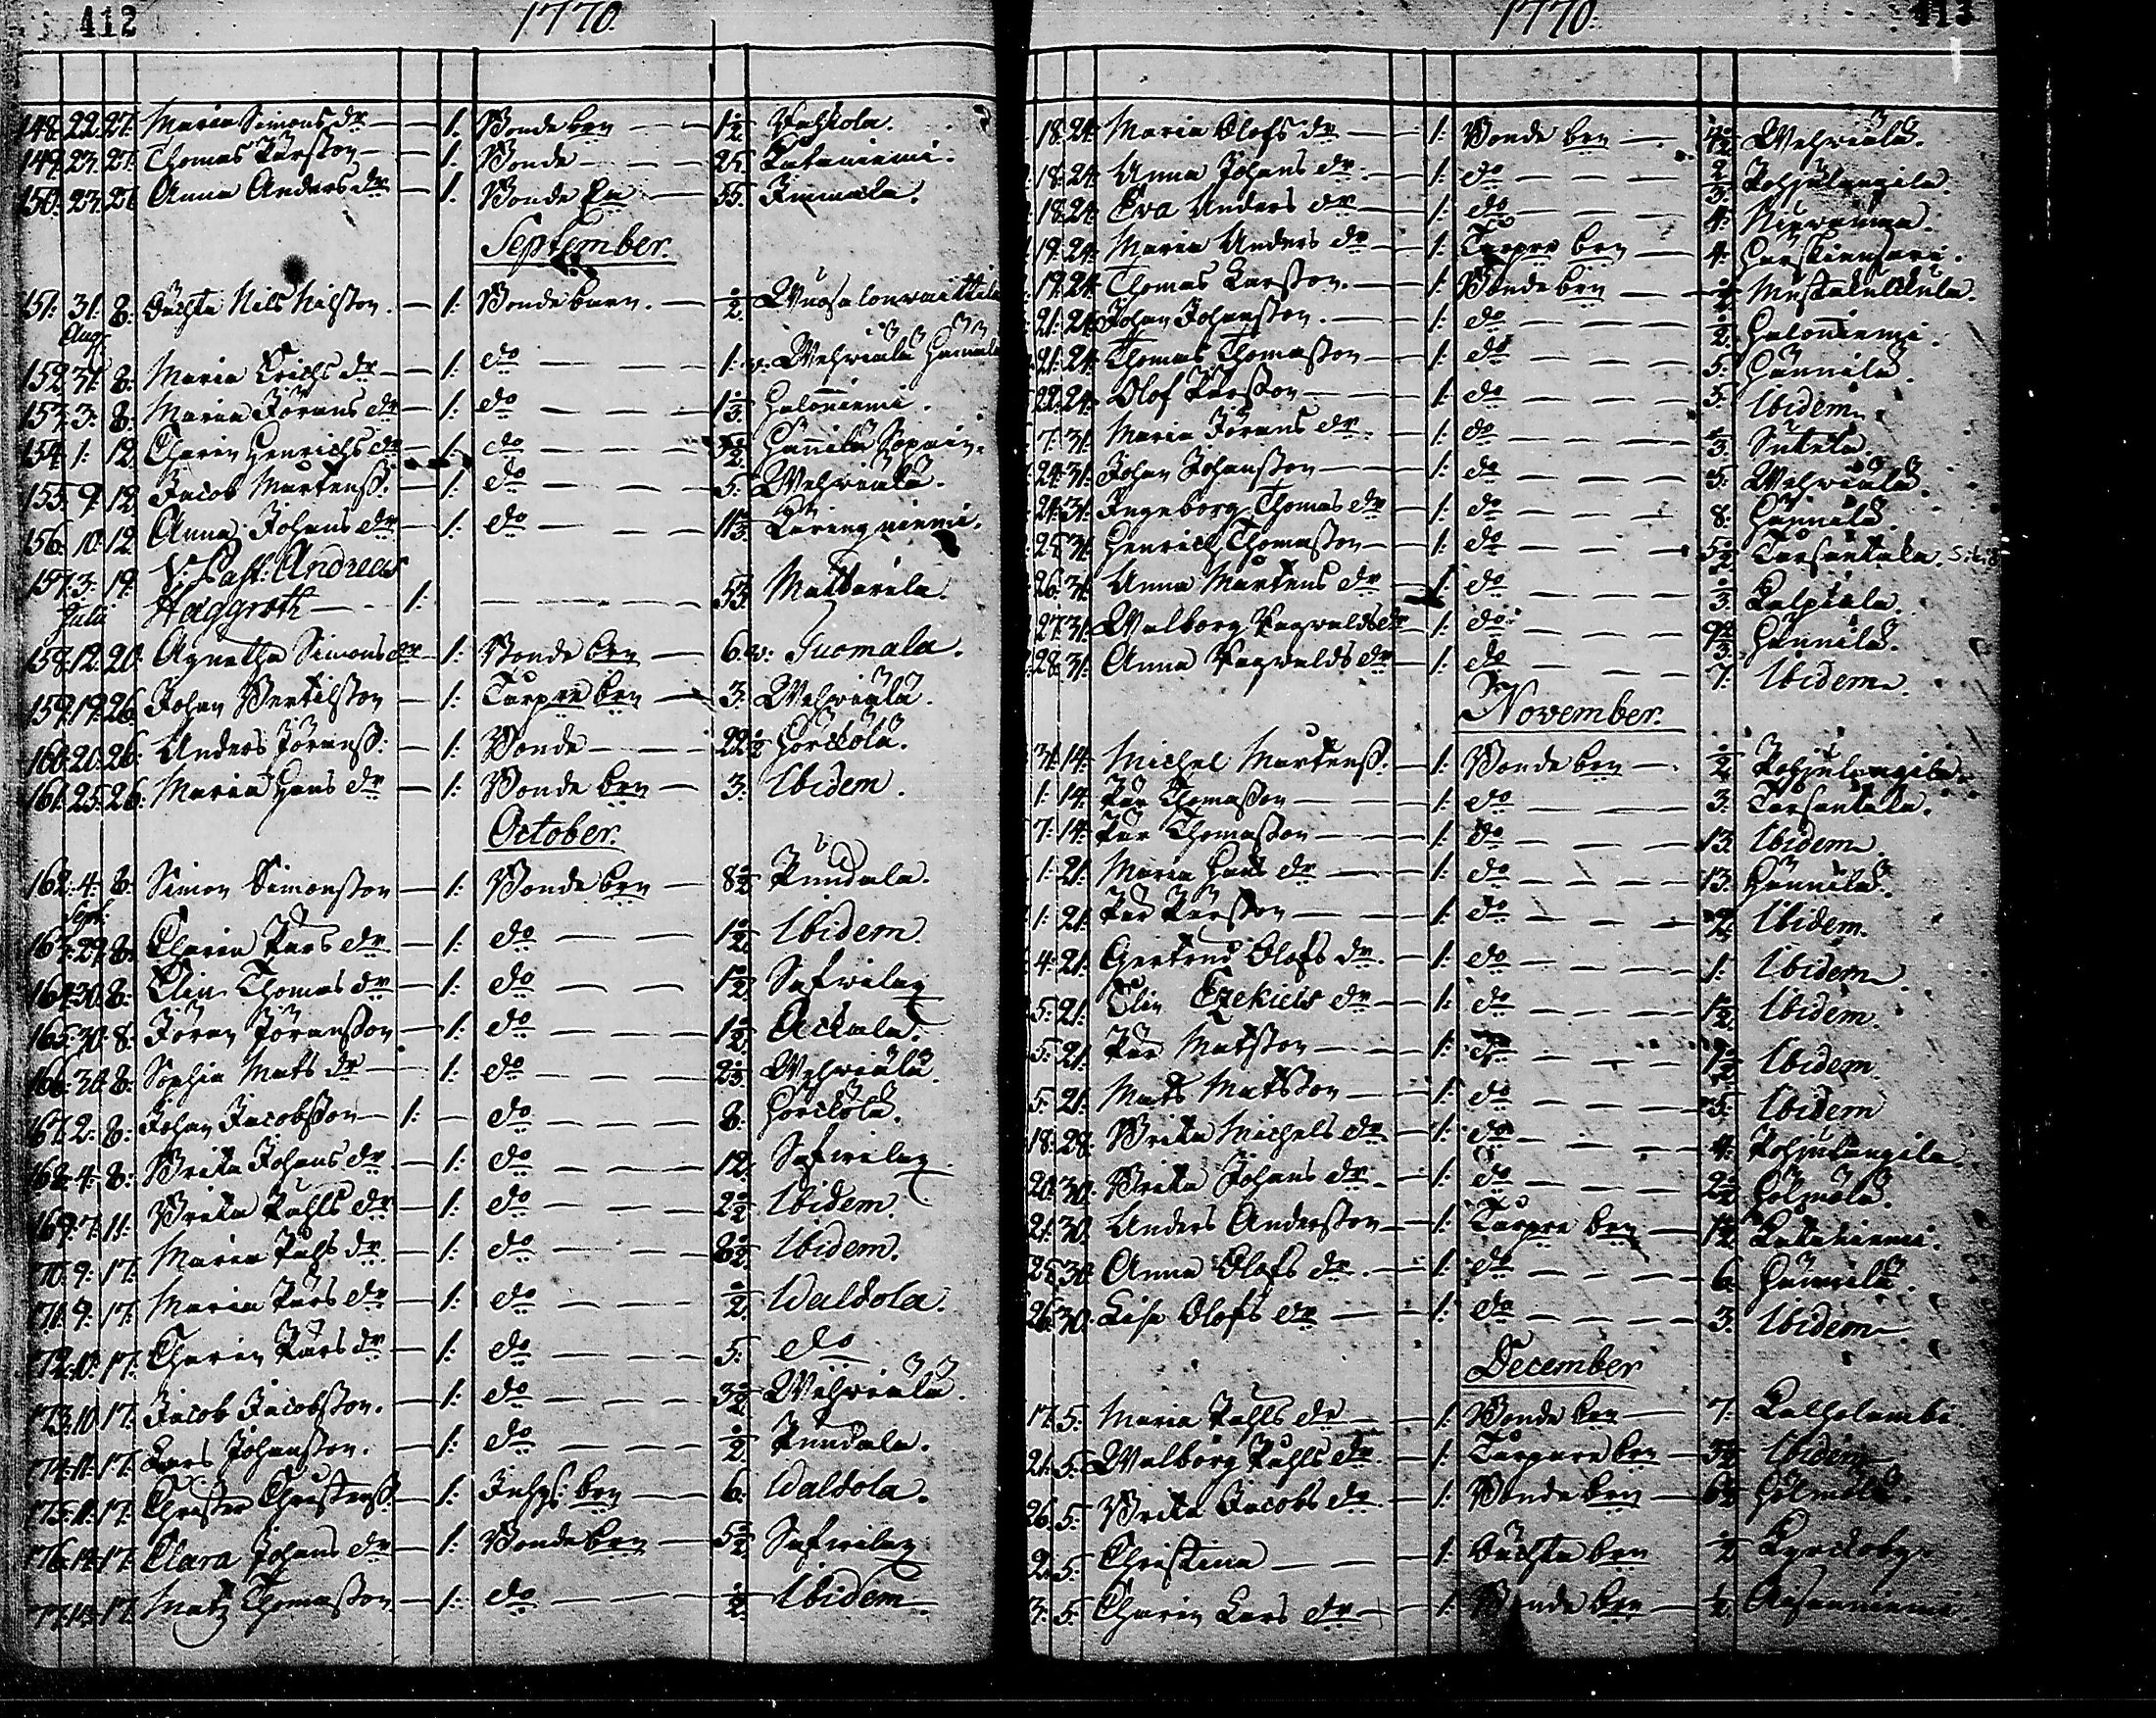 412 1770.
148. 22. 27. Maria Simons dr — 1. Bonde brn — 1½ Pohjola.
149. 23. 27. Thomas Pärsson — 1. Bonde — 25. Kataniemi.
150. 23. 27. Anna Anders dr — 1. Bonde En — 55. Immala.
September.
151. 31. 8. Oächta Nils Nilsson. — 1. Bondebarn. — ½
Aug.
152. 31. 8. Maria Erichs dr — 1. do — 1. v. Wehwiälä
153. 3. 8. Maria Jörans dr — 1. do — 1⅓ Haloniemi.
154. 1. 12. Charin Henrichs dr — 1. do — Hännilä
155. 9. 12. Jacob Mårtenss. — 1. do — 5. Wehwiälä.
156. 10. 12. Anna Johans dr — 1. do — niemi.
157. 3. 19. V. Past: Andreas
Julii Haggroth — 1. — 55. Mattarila.
158. 12. 20. Agnetha Simons dr — 1. Bonde brn — 6. v. Suomala.
159. 19. 26. Johan Bertilsson — 1. Torpre brn — 3. Wehwiälä.
160. 20. 26. Anders Jöranss. — 1. Bonde — 22½ Hörckölä.
161. 25. 26. Maria Hans dr — 1. Bonde brn — 3. Ibidem.
October.
162. 4. 8. Simon Simonsson — 1. Bonde brn — 8½ Pundala.
Sept.
163. 29. 8. Charin Pärs dr — 1. do — 1½ Ibidem.
164. 30. 8. Elin Thomas dr — 1. do — 1½
165. 30. 8. Jöran Jöransson — 1. do — 1½ Ackala.
166. 30. 8. Sophia Mats dr — 1. do — 2⅓ Wehwiälä.
167. 2. 8. Johan Jacobsson — 1. — do — 8. Hörckölä.
168. 4. 8. Brita Johans dr — 1. do — 12.
169. 7. 11. Brita Påhls dr — 1. do — 2½ Ibidem.
170. 9. 17. Maria Påhls dr — 1. do — 8½ Ibidem.
171. 9. 17. Maria Pärs dr — 1. do — ½ Waldola.
172. 10. 17. Charin Pärs dr — 1. do — 5. do
173. 10. 17. Jacob Jacobsson. — 1. do — 3½ Wehwiälä.
174. 11. 17. Lars Johansson. — 1. do — ½ Pundala.
175. 11. 17. Christer Christerss. — 1. Inhys: brn — 6. Waldola.
176. 14. 17. Clara Johans dr — 1. Bonde brn — 5½
177. 14. 17. Matz Thomasson — 1. do — ½ Ibidem
1770. 413
18. 24. Maria Olofs dr — 1. Bonde brn — Wehwiälä.
18. 24. Anna Johans dr — 1. do — ⅔ Pohjalangila.
18. 24. Eva Anders dr — 1. do — 4.
19. 24. Maria Anders dr — 1. Torpre brn — 4.
19. 24. Thomas Larsson. — 1. Bonde brn — ½
21. 24. Johan Johansson. — 1. do — ½ Haloniemi.
21. 24. Thomas Thomasson — 1. do — 5. Hännilä.
22. 24. Olof Pärsson — 1. do — 5. Ibidem
7. 31. Maria Jörans dr — 1. do — ⅓ Sutela.
24. 31. Johan Johansson — 1. do — 5. Wehwiälä.
24. 31. Ingeborg Thomas dr — 1. do — 8. Hännilä.
25. 31. Henrich Thomasson — 1. do — 5½ Torsantaka.
26. 31. Anna Mårtens dr — 1. do — ⅓
27. 31. Walborg Ragwalds dr — 1. do — Hännilä.
28. 31. Anna Ragwalds dr — 1. do — 7. Ibidem
November.
31. 14. Michel Mårtenss. — 1. Bonde brn — ½ Pohjalangila.
1. 14. Pär Thomasson — 1. do — 3. Torsantaka.
7. 14. Pär Thomasson — 1. do — 13. Ibidem
1. 21. Maria Hans dr — 1. do — 13. Hännilä.
1. 21. Pär Pärsson — 1. do — Ibidem.
4. 21. Gertrud Olofs dr — 1. do — 1. Ibidem
5. 21. Elin Ezekiels dr — 1. do — 1½ Ibidem.
5. 21. Pär Matsson — 1. do — 1½ Ibidem.
5. 21. Mats Matsson — 1. do — 5. Ibidem
18. 28. Brita Michels dr — 1. do — 4. Pohjalangila.
20. 30. Brita Johans dr — 1. do — 2½ Hölmölä.
21. 30. Anders Andersson — 1. Torpre brn — 1½ Kataniemi.
25. 30. Anna Olofs dr — 1. do — 6. Hännilä.
26. 30. Lisa Olofs dr — 1. do — 3. Ibidem
December
17. 5. Maria Påhls dr — 1. Bonde brn — 7. Kalholambi
21. 5. Walborg Påhls dr — 1. Torpare brn — Ibidem
26. 5. Brita Jacobs dr — 1. Bonde brn — 6½ Hölmölä.
2. 5. Christina — 1. Oächta brn ½ Kyrckoby
3. 5. Charin Lars dr — 1. Bonde brn — ½